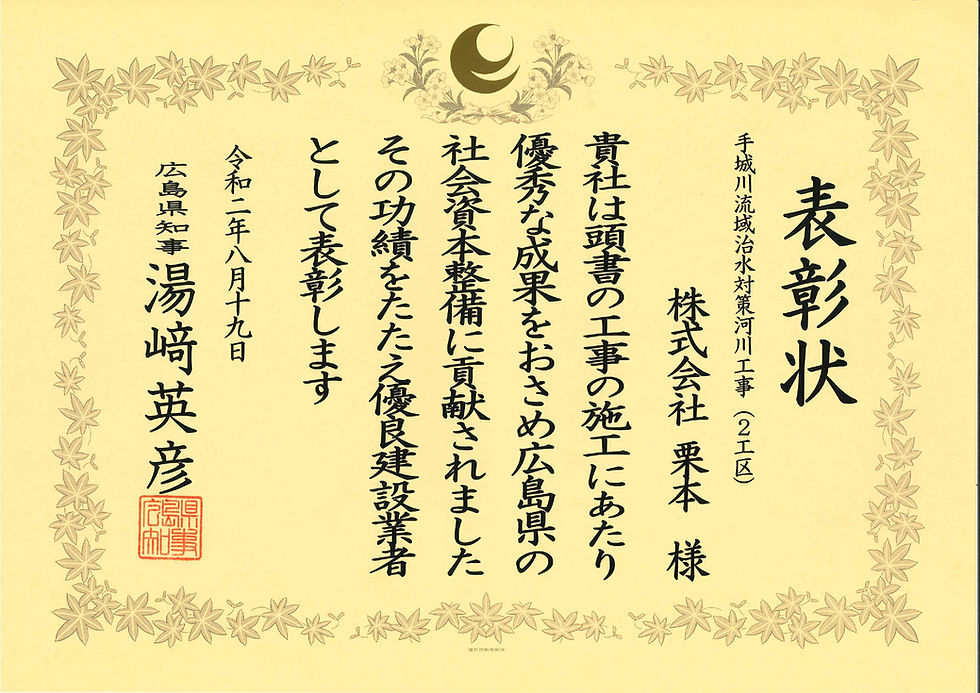 表彰状
手城川流域治水対策河川工事（２工区）
株式会社 栗本 様
貴社は頭書の工事の施工にあたり
優秀な成果をおさめ広島県の
社会資本整備に貢献されました
その功績をたたえ優良建設業者
として表彰します
令和二年八月十九日
広島県知事 湯﨑英彦
広島県知事